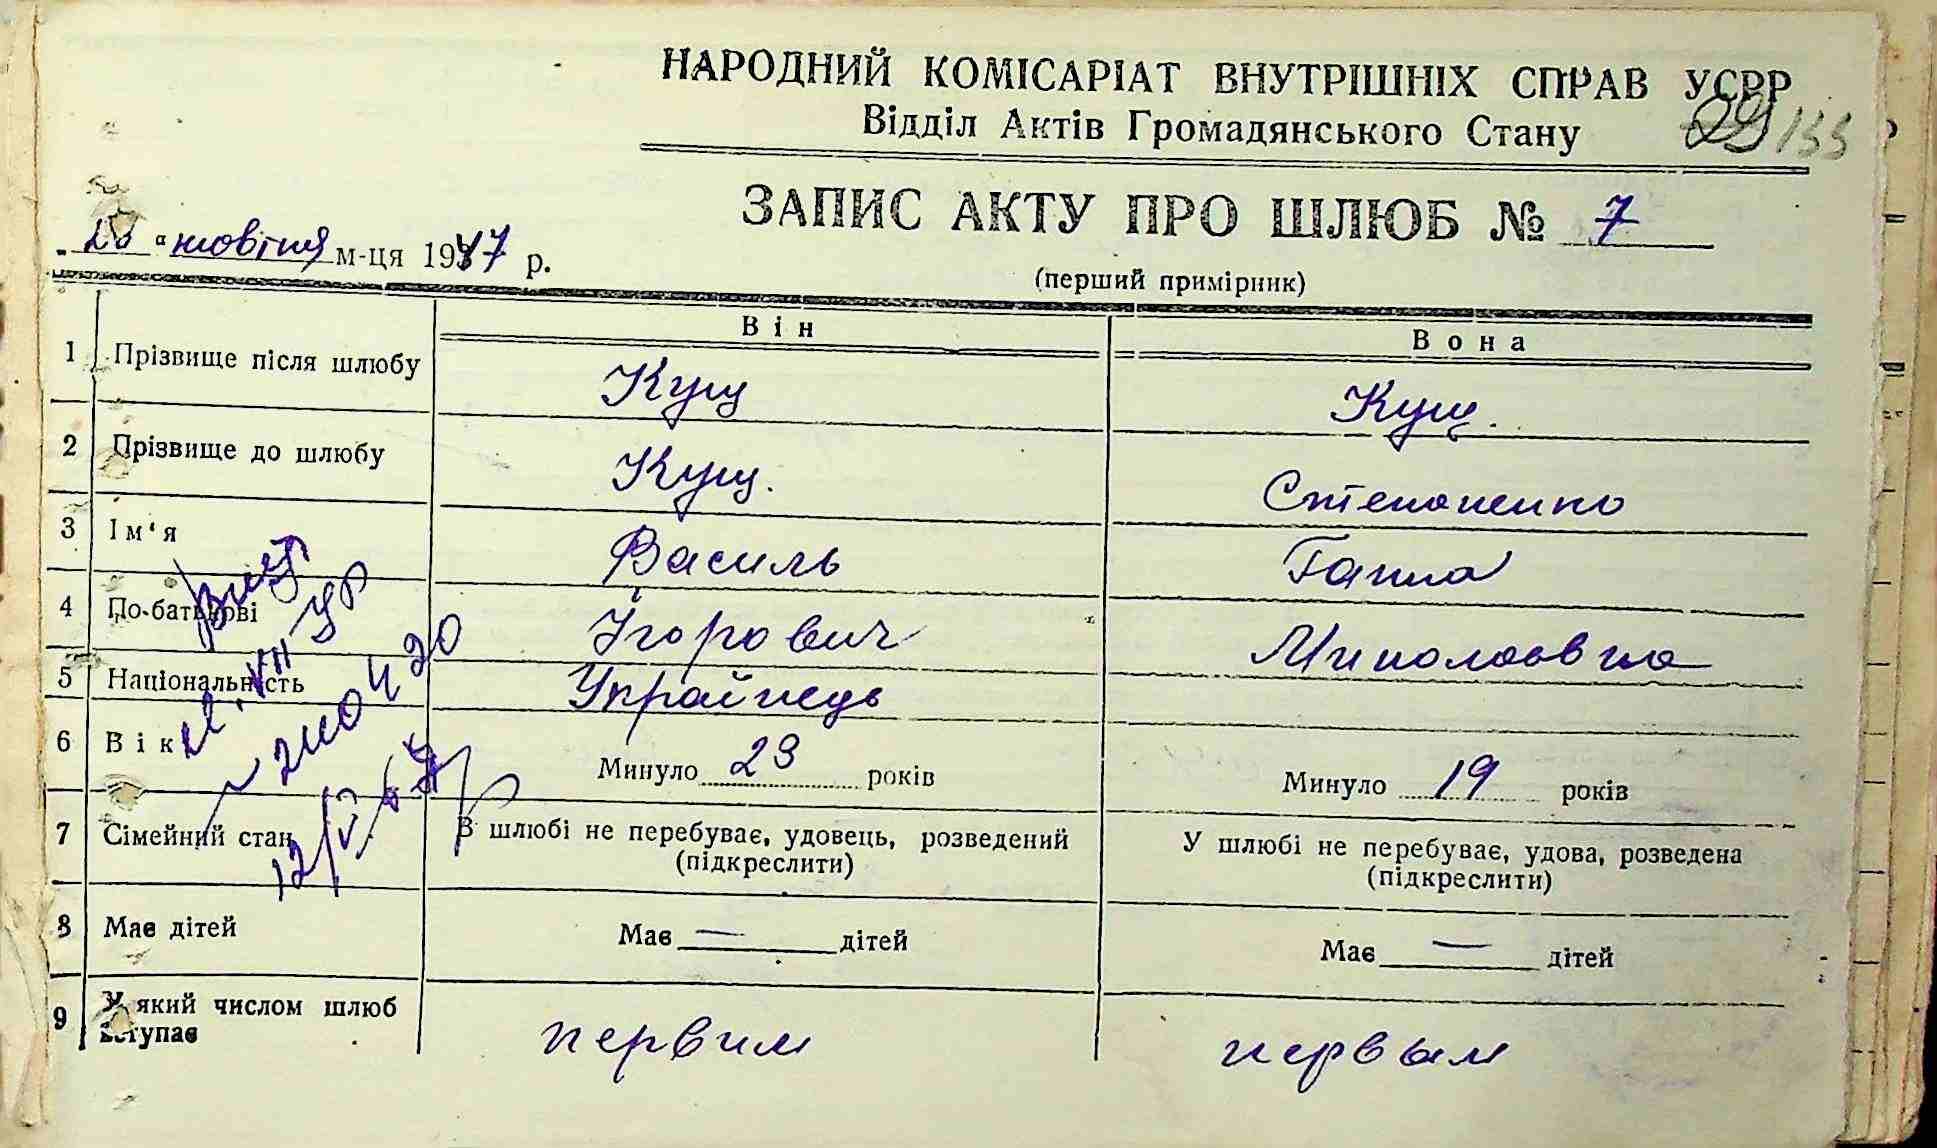 НАРОДНИЙ КОМІСАРІАТ ВНУТРІШНІХ СПРАВ УСРР
Відділ Актів Громадянського Стану
29 155
ЗАПИС АКТУ ПРО ШЛЮБ № 7
„ “ жовтня м-ця 1947 р.
(перший примірник)
Він Вона
1 Прізвище після шлюбу Кущ Кущ.
2 Прізвище до шлюбу Кущ. Степаненко
3 Ім‘я Василь Ганна
4 По-батькові Ігорович Миколаївна
5 Національність Українець
6 Вік Минуло 23 років Минуло 19 років
7 Сімейний стан В шлюбі не перебуває, удовець, розведений У шлюбі не перебуває, удова, розведена
(підкреслити) (підкреслити)
8 Має дітей Має — дітей Має — дітей
9 У який числом шлюб
вступає первим первым